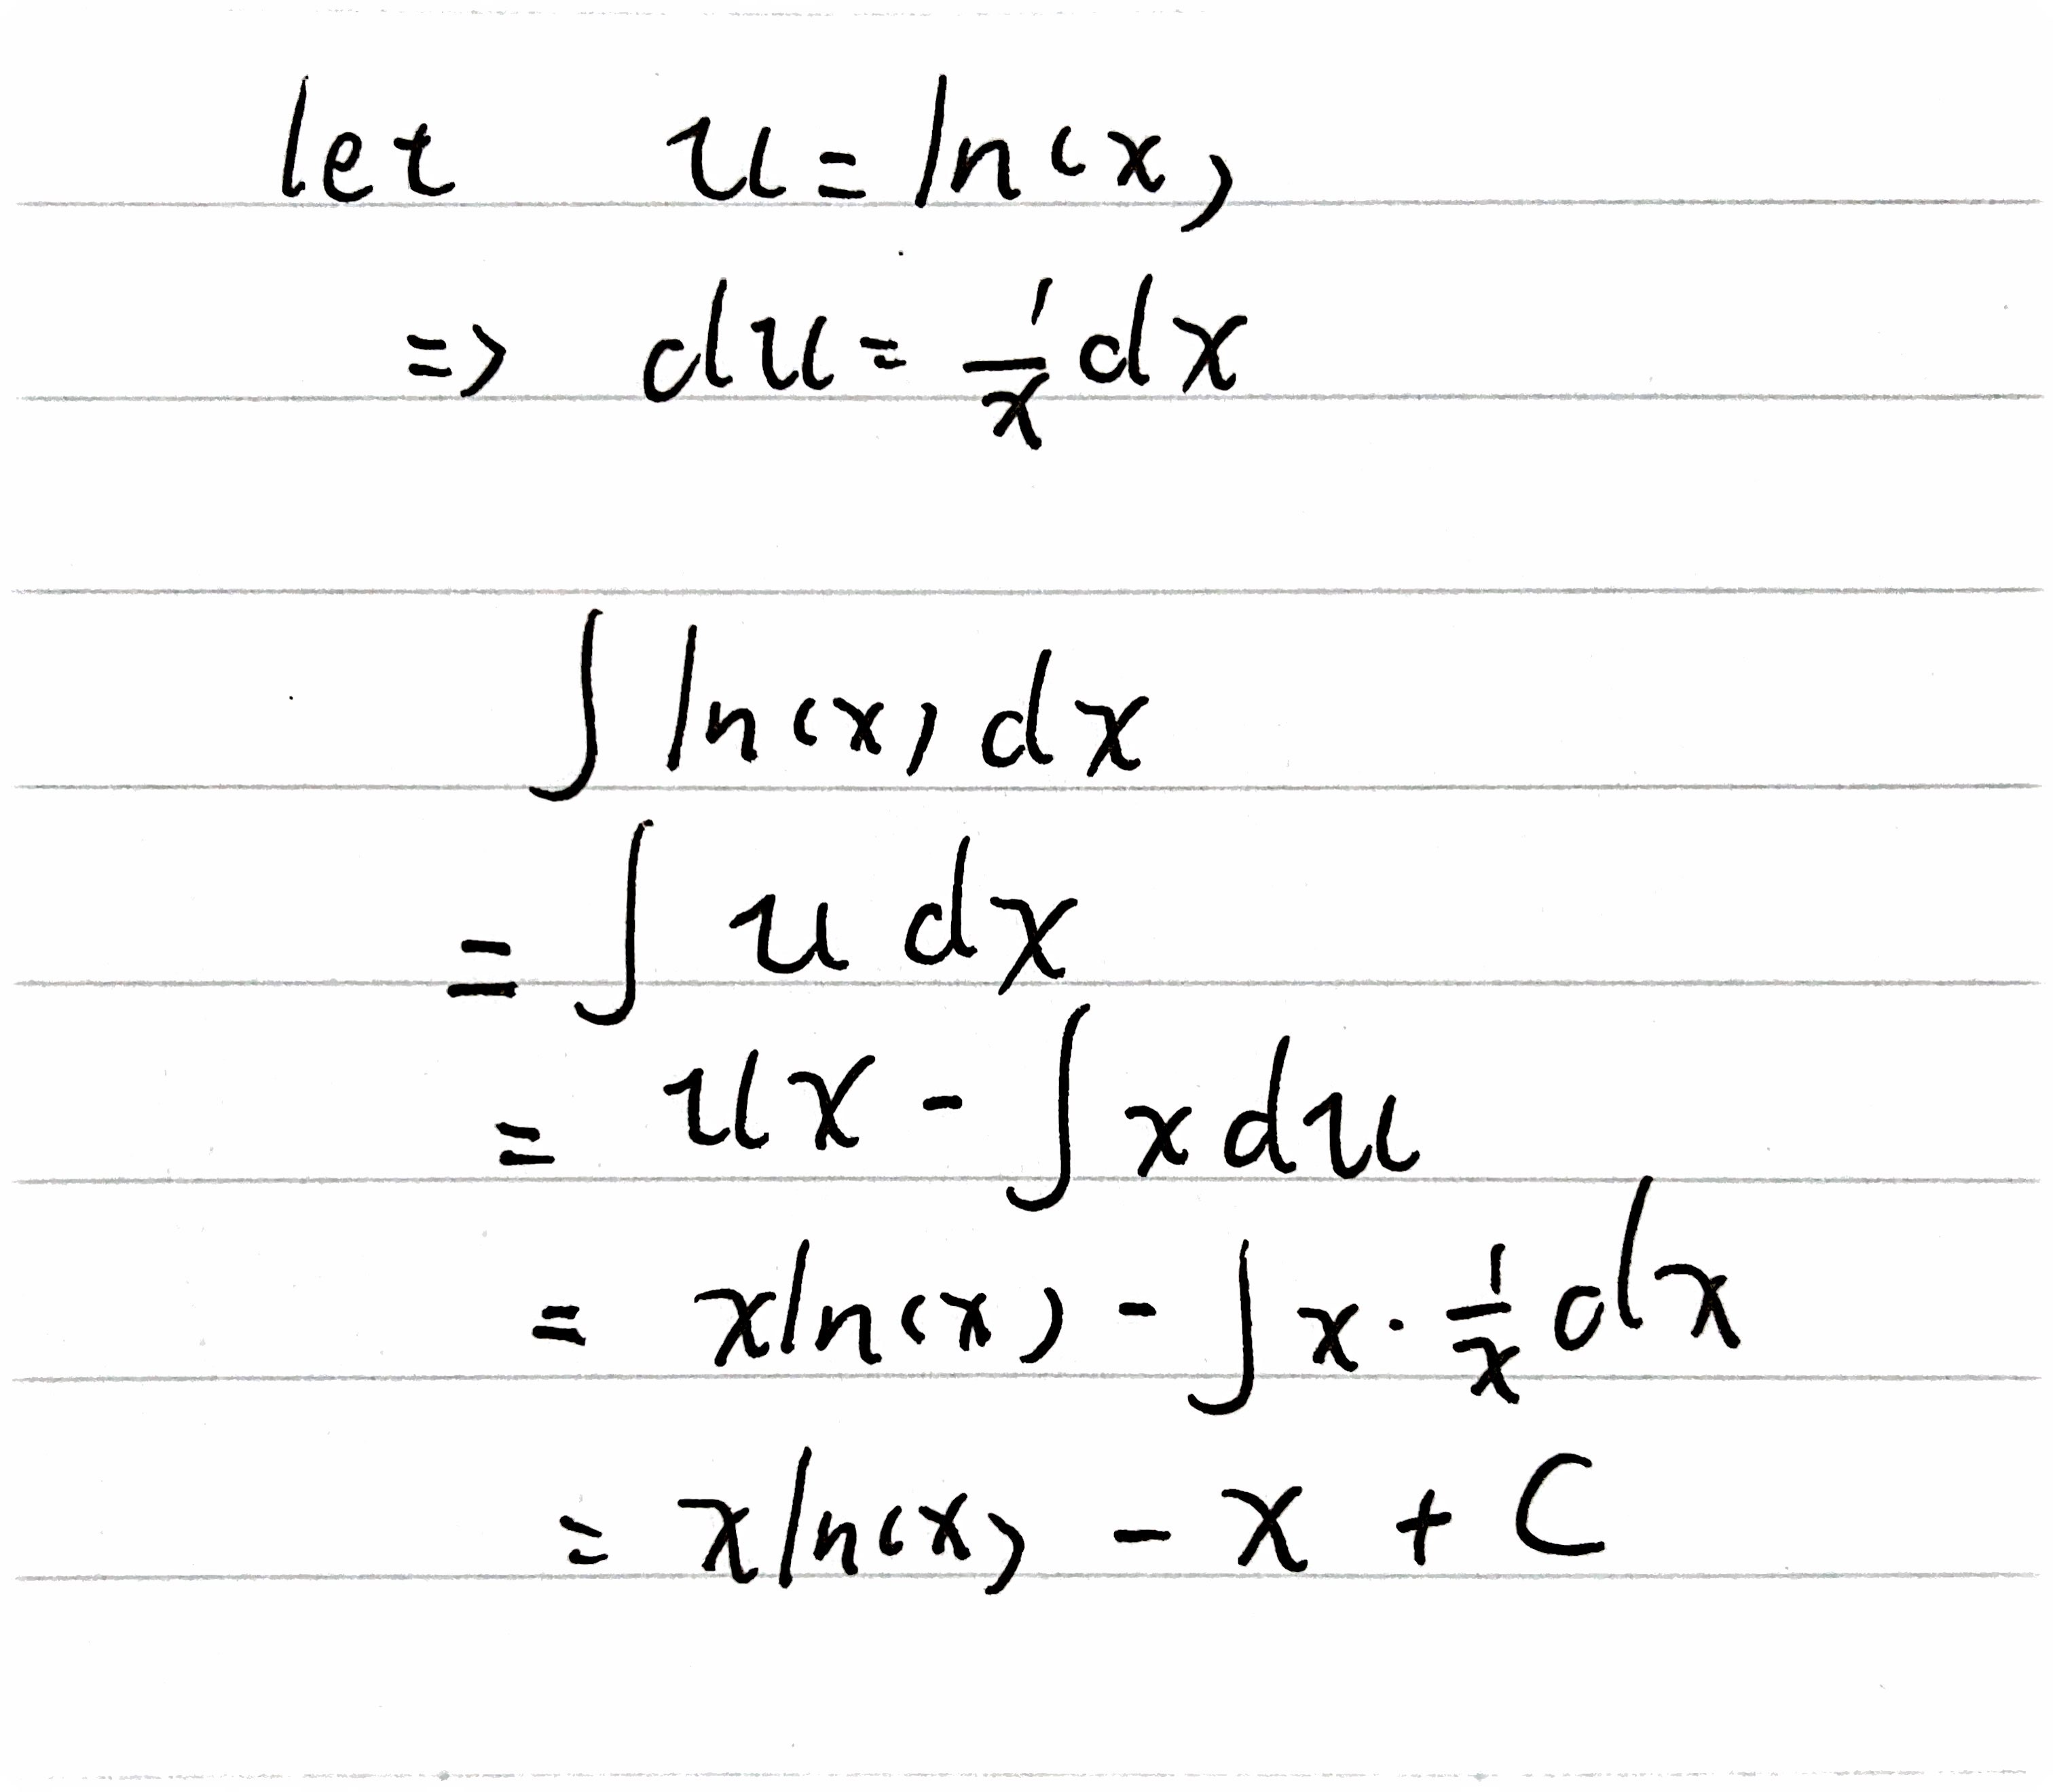 let u = ln(x)
=> du = 1/x dx
∫ ln(x) dx
= ∫ u dx
= ux - ∫ x du
= xln(x) - ∫ x · 1/x dx
= xln(x) - x + C